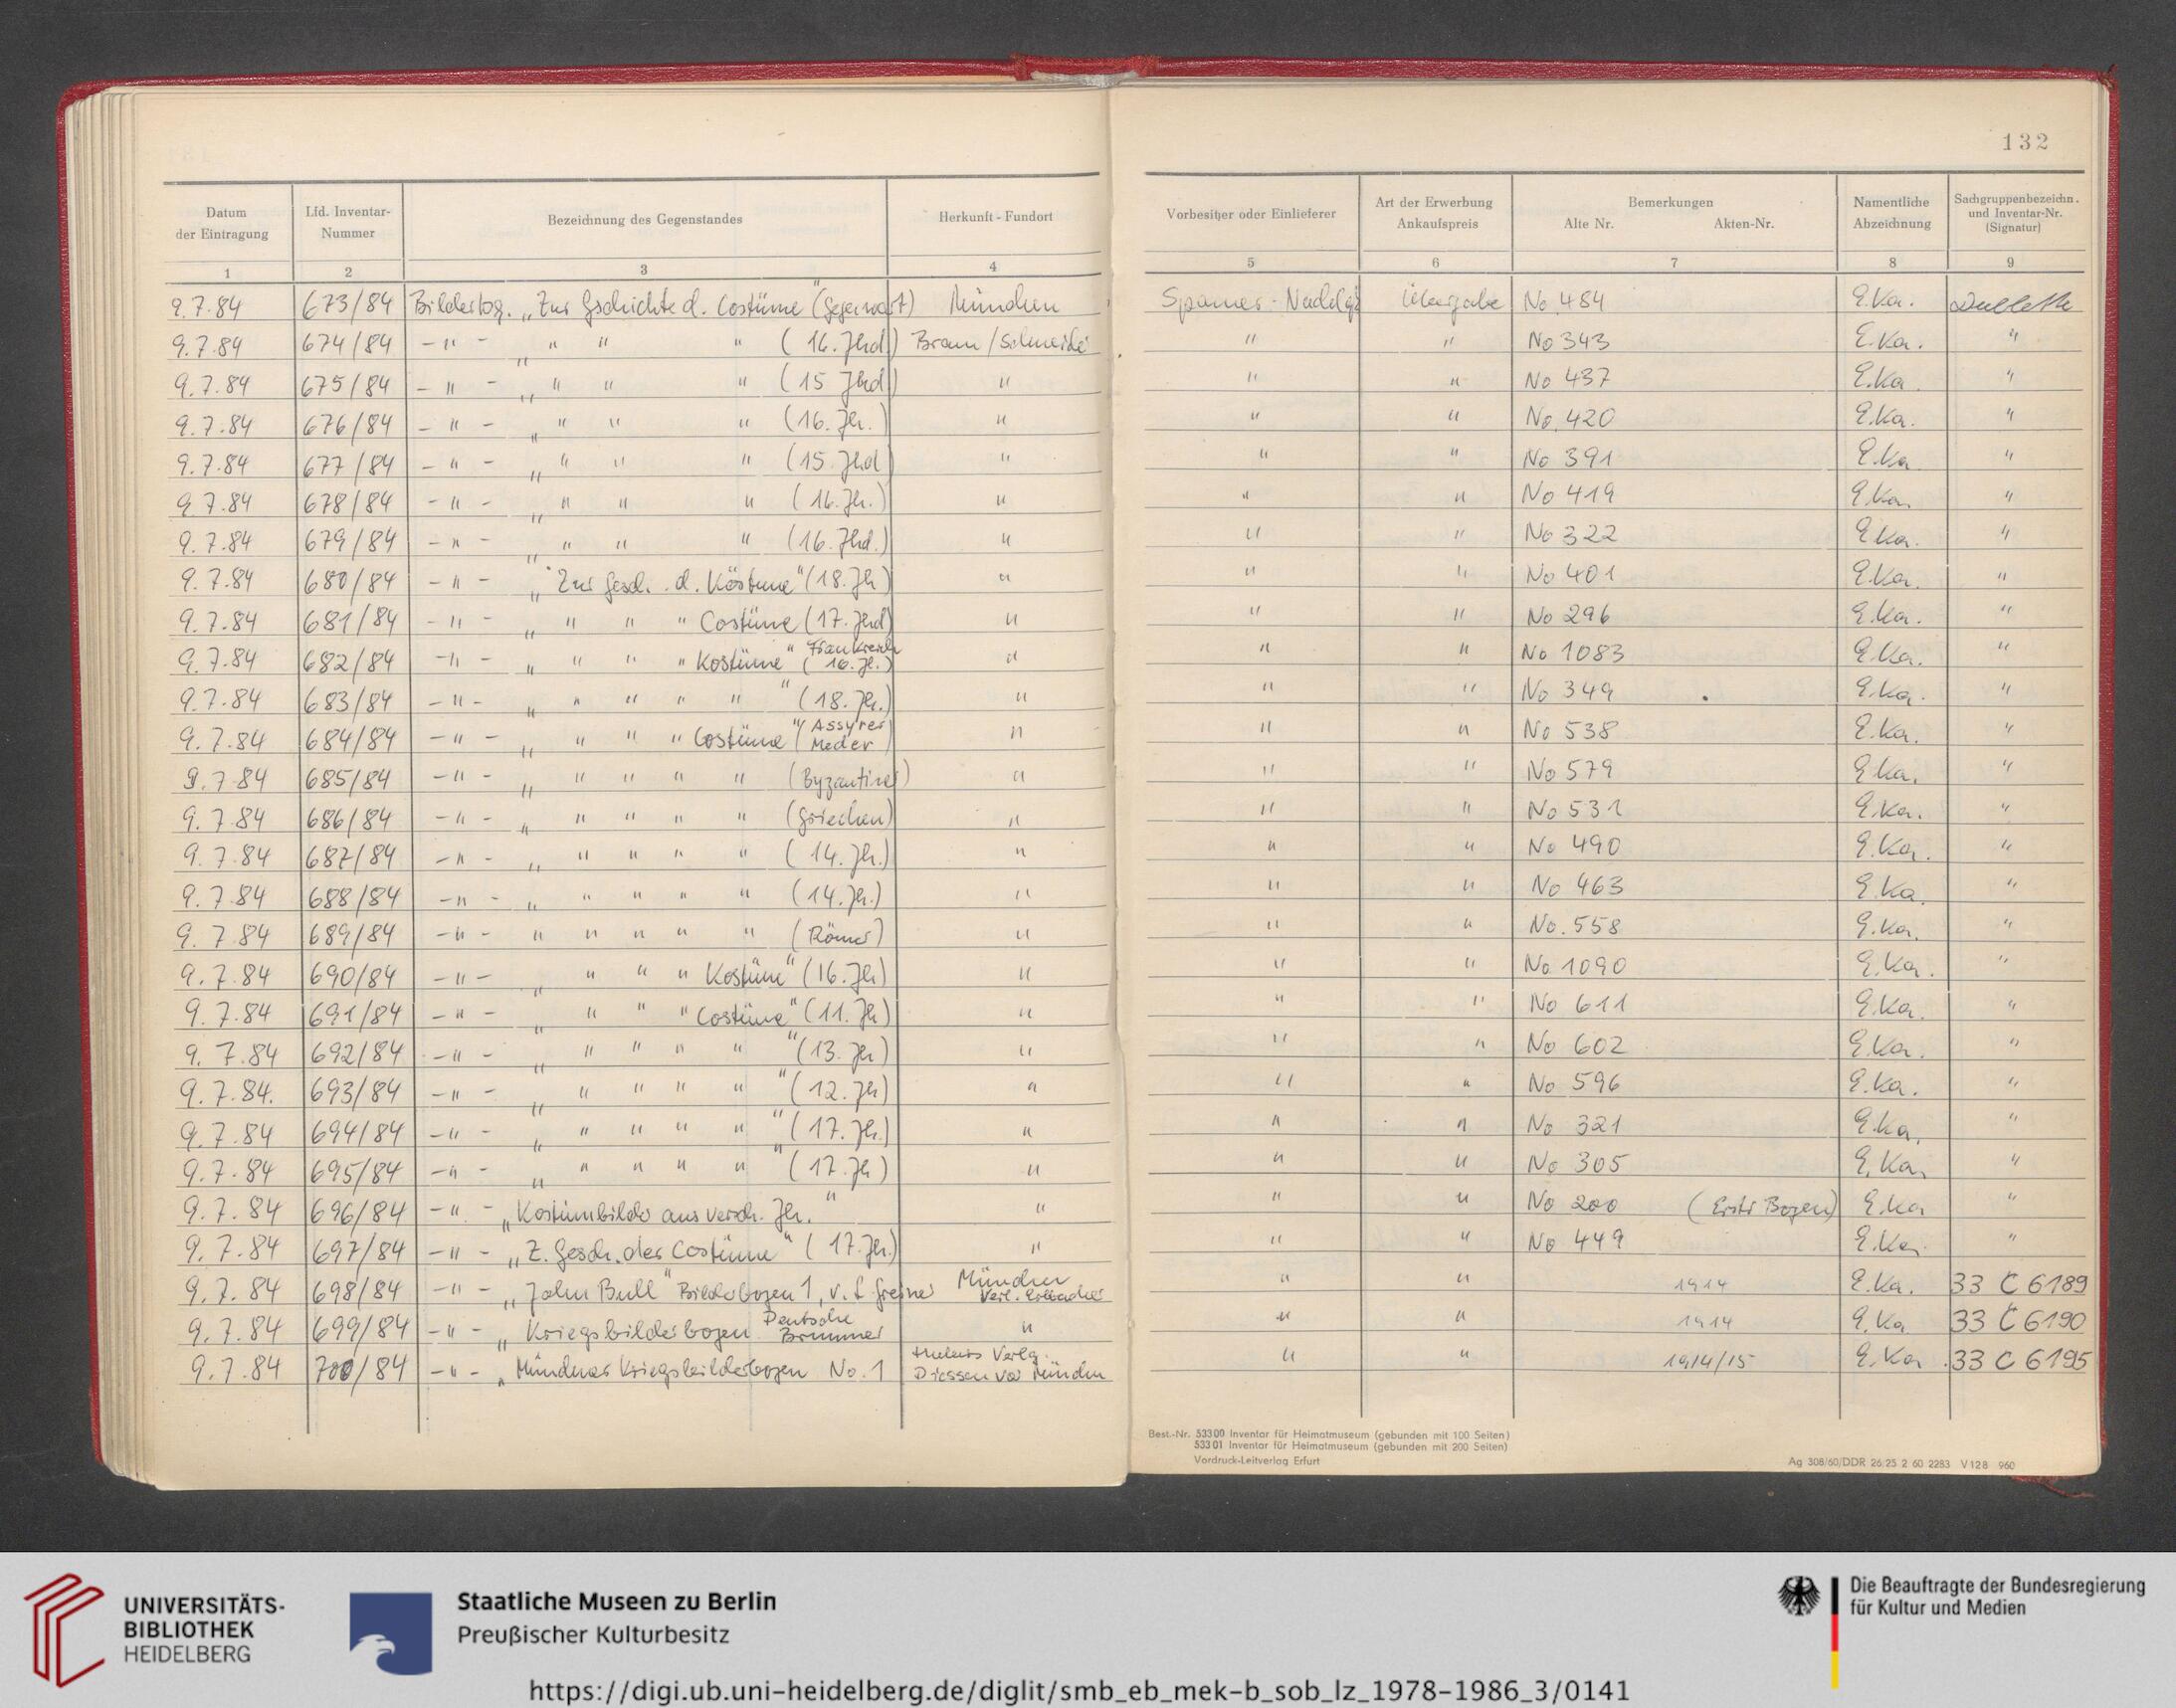 132
Datum der Eintragung | Lfd. Inventar-Nummer | Bezeichnung des Gegenstandes | Herkunft - Fundort | Vorbesitzer oder Einlieferer | Art der Erwerbung Ankaufspreis | Bemerkungen Alte Nr. Akten-Nr. | Namentliche Abzeichnung | Sachgruppenbezeichn. und Inventar-Nr. (Signatur)
1 | 2 | 3 | 4 | 5 | 6 | 7 | 8 | 9
9.7.84 | 673/84 | Bilderbog. „Zur Gschichte d. Costüme" (Gegenwart) | München | Spamer-Nachlaß | Übergabe | No. 484 | E.Ka. | Dublette
9.7.84 | 674/84 | -"- „ " " " (16. Jhd) | Braun/Schneider | " | " | No 343 | E.Ka. | "
9.7.84 | 675/84 | -"- „ " " " (15 Jhd) | " | " | " | No 437 | E.Ka. | "
9.7.84 | 676/84 | -"- „ " " " (16. Jh.) | " | " | " | No. 420 | E.Ka. | "
9.7.84 | 677/84 | -"- „ " " " (15. Jhd) | " | " | " | No 391 | E.Ka | "
9 7.84 | 678/84 | -"- „ " " " (16. Jh.) | " | " | " | No 419 | E.Ka. | "
9.7.84 | 679/84 | -"- „ " " " (16. Jhd.) | " | " | " | No 322 | E Ka. | "
9.7.84 | 680/84 | -"- „Zur Gesch. d. Köstüme" (18. Jh) | " | " | " | No 401 | E.Ka. | "
9.7.84 | 681/84 | -"- „ " " " Costüme (17. Jhd) | " | " | " | No 296 | E.Ka. | "
9.7.84 | 682/84 | -"- „ " " " Kostüme" (Frankreich 16. Jh.) | " | " | " | No 1083 | E.Ka. | "
9.7.84 | 683/84 | -"- „ " " " " " (18. Jh.) | " | " | " | No 349 | E.Ka. | "
9.7.84 | 684/84 | -"- „ " " " Costüme" (Assyrer Meder) | " | " | " | No 538 | E.Ka. | "
9.7.84 | 685/84 | -"- „ " " " " (Byzantiner) | " | " | " | No 579 | E Ka. | "
9.7.84 | 686/84 | -"- „ " " " " (Griechen) | " | " | " | No 531 | E.Ka. | "
9.7.84 | 687/84 | -"- „ " " " " (14. Jh.) | " | " | " | No 490 | E.Ka. | "
9.7.84 | 688/84 | -"- „ " " " " (14. Jh.) | " | " | " | No 463 | E.Ka. | "
9.7.84 | 689/84 | -"- " " " " " (Römer) | " | " | " | No. 558 | E.Ka. | "
9.7.84 | 690/84 | -"- „ " " " Kostüm" (16. Jh) | " | " | " | No 1090 | E.Ka. | "
9.7.84 | 691/84 | -"- „ " " " Costüme" (11. Jh) | " | " | " | No 611 | E.Ka. | "
9.7.84 | 692/84 | -"- „ " " " " " (13. Jh) | " | " | " | No 602 | E.Ka. | "
9.7.84. | 693/84 | -"- „ " " " " " (12. Jh) | " | " | " | No 596 | E.Ka. | "
9.7.84 | 694/84 | -"- „ " " " " " (17. Jh.) | " | " | " | No 321 | E.Ka. | "
9.7.84 | 695/84 | -"- „ " " " " " (17. Jh) | " | " | " | No 305 | E.Ka. | "
9.7.84 | 696/84 | -"- „Kostümbilder aus versch. Jh." | " | " | " | No 200 (Erster Bogen) | E.Ka | "
9.7.84 | 697/84 | -"- „Z. Gesch. der Costüme" (17. Jh.) | " | " | " | No 449 | E.Ka. | "
9.7.84 | 698/84 | -"- „John Bull" Bilderbogen 1, v. L Greiner | München Verl. | " | " | 1914 | E.Ka. | 33 C 6189
9.7.84 | 699/84 | -"- „Kriegsbilderbogen Deutsche Brummer | " | " | " | 1914 | E.Ka | 33 C 6190
9.7.84 | 700/84 | -"- „Münchner Kriegsbilderbogen No. 1 | Hubers Verlg. Diessen vor München | " | " | 1914/15 | E.Ka. | 33 C 6195
Best.-Nr. 53300 Inventar für Heimatmuseum (gebunden mit 100 Seiten)
53301 Inventar für Heimatmuseum (gebunden mit 200 Seiten)
Vordruck-Leitverlag Erfurt
Ag 308/60/DDR 26 25 2 60 2283 V128 960
UNIVERSITÄTS-
BIBLIOTHEK
HEIDELBERG
Staatliche Museen zu Berlin
Preußischer Kulturbesitz
Die Beauftragte der Bundesregierung
für Kultur und Medien
https://digi.ub.uni-heidelberg.de/diglit/smb_eb_mek-b_sob_lz_1978-1986_3/0141